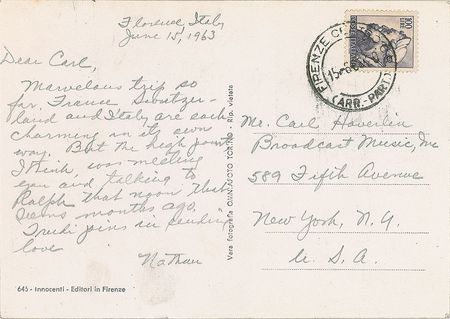 Florence, Italy
June 15, 1963
Dear Carl,
Marvelous trip so
far. France Switzer-
land and Italy are each
charming in its own
way. But the high point
I think, was meeting
you and talking to
Ralph that noon that
seems months ago.
Trudi joins in sending
love
Nathan
645 - Innocenti - Editori in Firenze
Vera fotografia OMNIAFOTO TORINO - Rip. vietata
FIRENZE
(ARR. PART.)
100
Mr. Carl Haverlin
Broadcast Music, Inc
589 Fifth Avenue
New York, N.Y.
U.S.A.